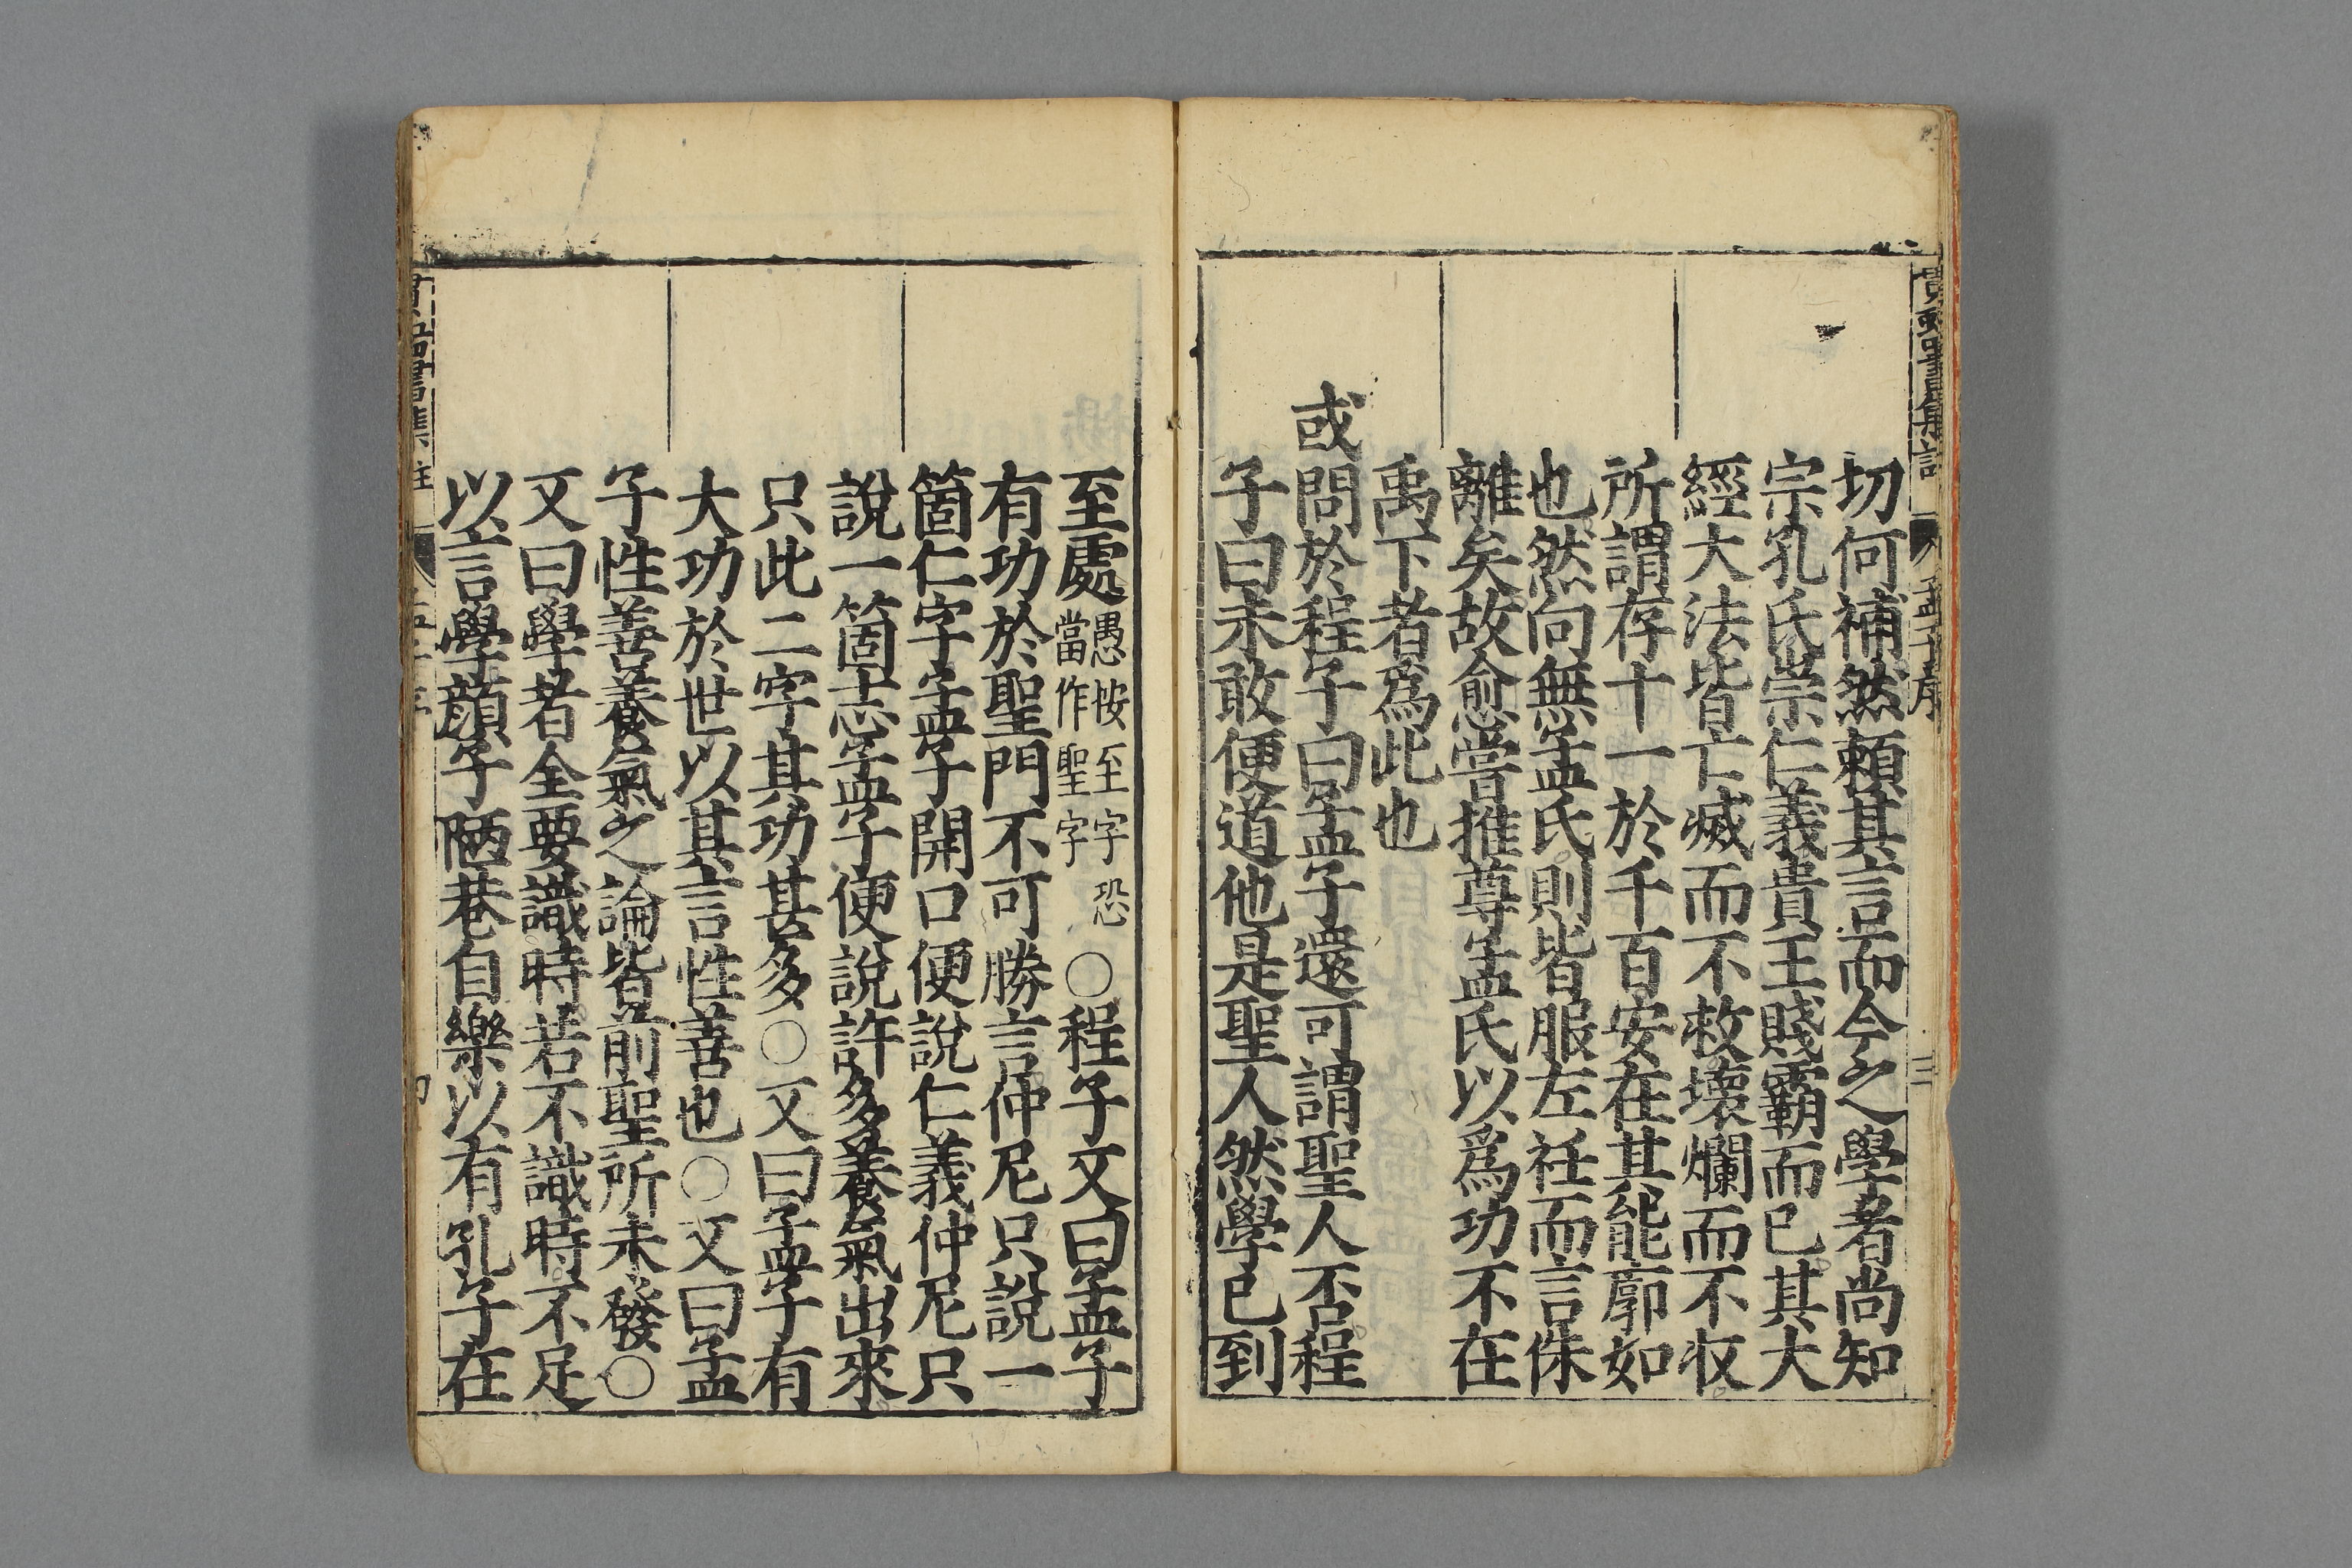 切何補然賴其言而今之學者尚知
宗孔氏崇仁義貴王賤霸而已其大
經大法皆亡滅而不救壞爛而不收
所謂存十一於千百安在其能廓如
也然向無孟氏則皆服左衽而言侏
離矣故愈嘗推尊孟氏以爲功不在
禹下者爲此也
或問於程子曰孟子還可謂聖人否程
子曰未敢便道他是聖人然學已到
孟子序
三
至處愚按至字恐當作聖字○程子又曰孟子
有功於聖門不可勝言仲尼只說一
箇仁字孟子開口便說仁義仲尼只
說一箇志孟子便說許多養氣出來
只此二字其功甚多○又曰孟子有
大功於世以其言性善也○又曰孟
子性善養氣之論皆前聖所未發○
又曰學者全要識時若不識時不足
以言學顏子陋巷自樂以有孔子在